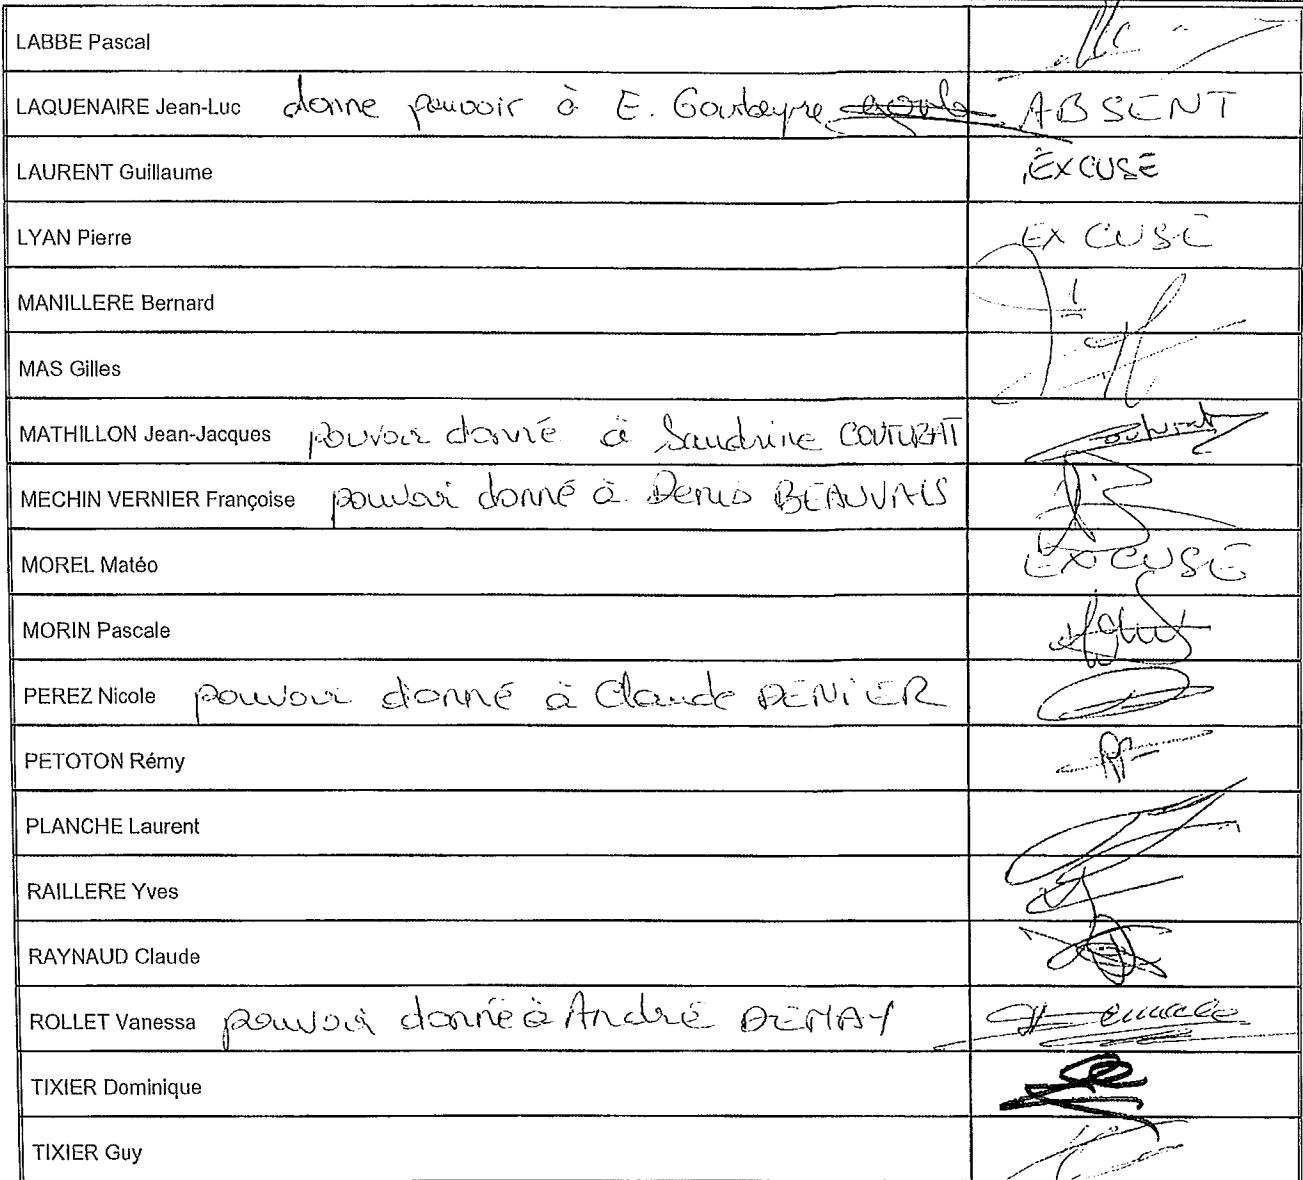 LABBE Pascal
LAQUENAIRE Jean-Luc donne pouvoir à E. Gourbeyre ABSENT
LAURENT Guillaume EXCUSE
LYAN Pierre EXCUSÉ
MANILLERE Bernard
MAS Gilles
MATHILLON Jean-Jacques pouvoir donné à Sandrine COUTURAT
MECHIN VERNIER Françoise pouvoir donné à Denis BEAUVAIS
MOREL Matéo EXCUSÉ
MORIN Pascale
PEREZ Nicole pouvoir donné à Claude DENIER
PETOTON Rémy
PLANCHE Laurent
RAILLERE Yves
RAYNAUD Claude
ROLLET Vanessa pouvoir donné à André DEMAY
TIXIER Dominique
TIXIER Guy